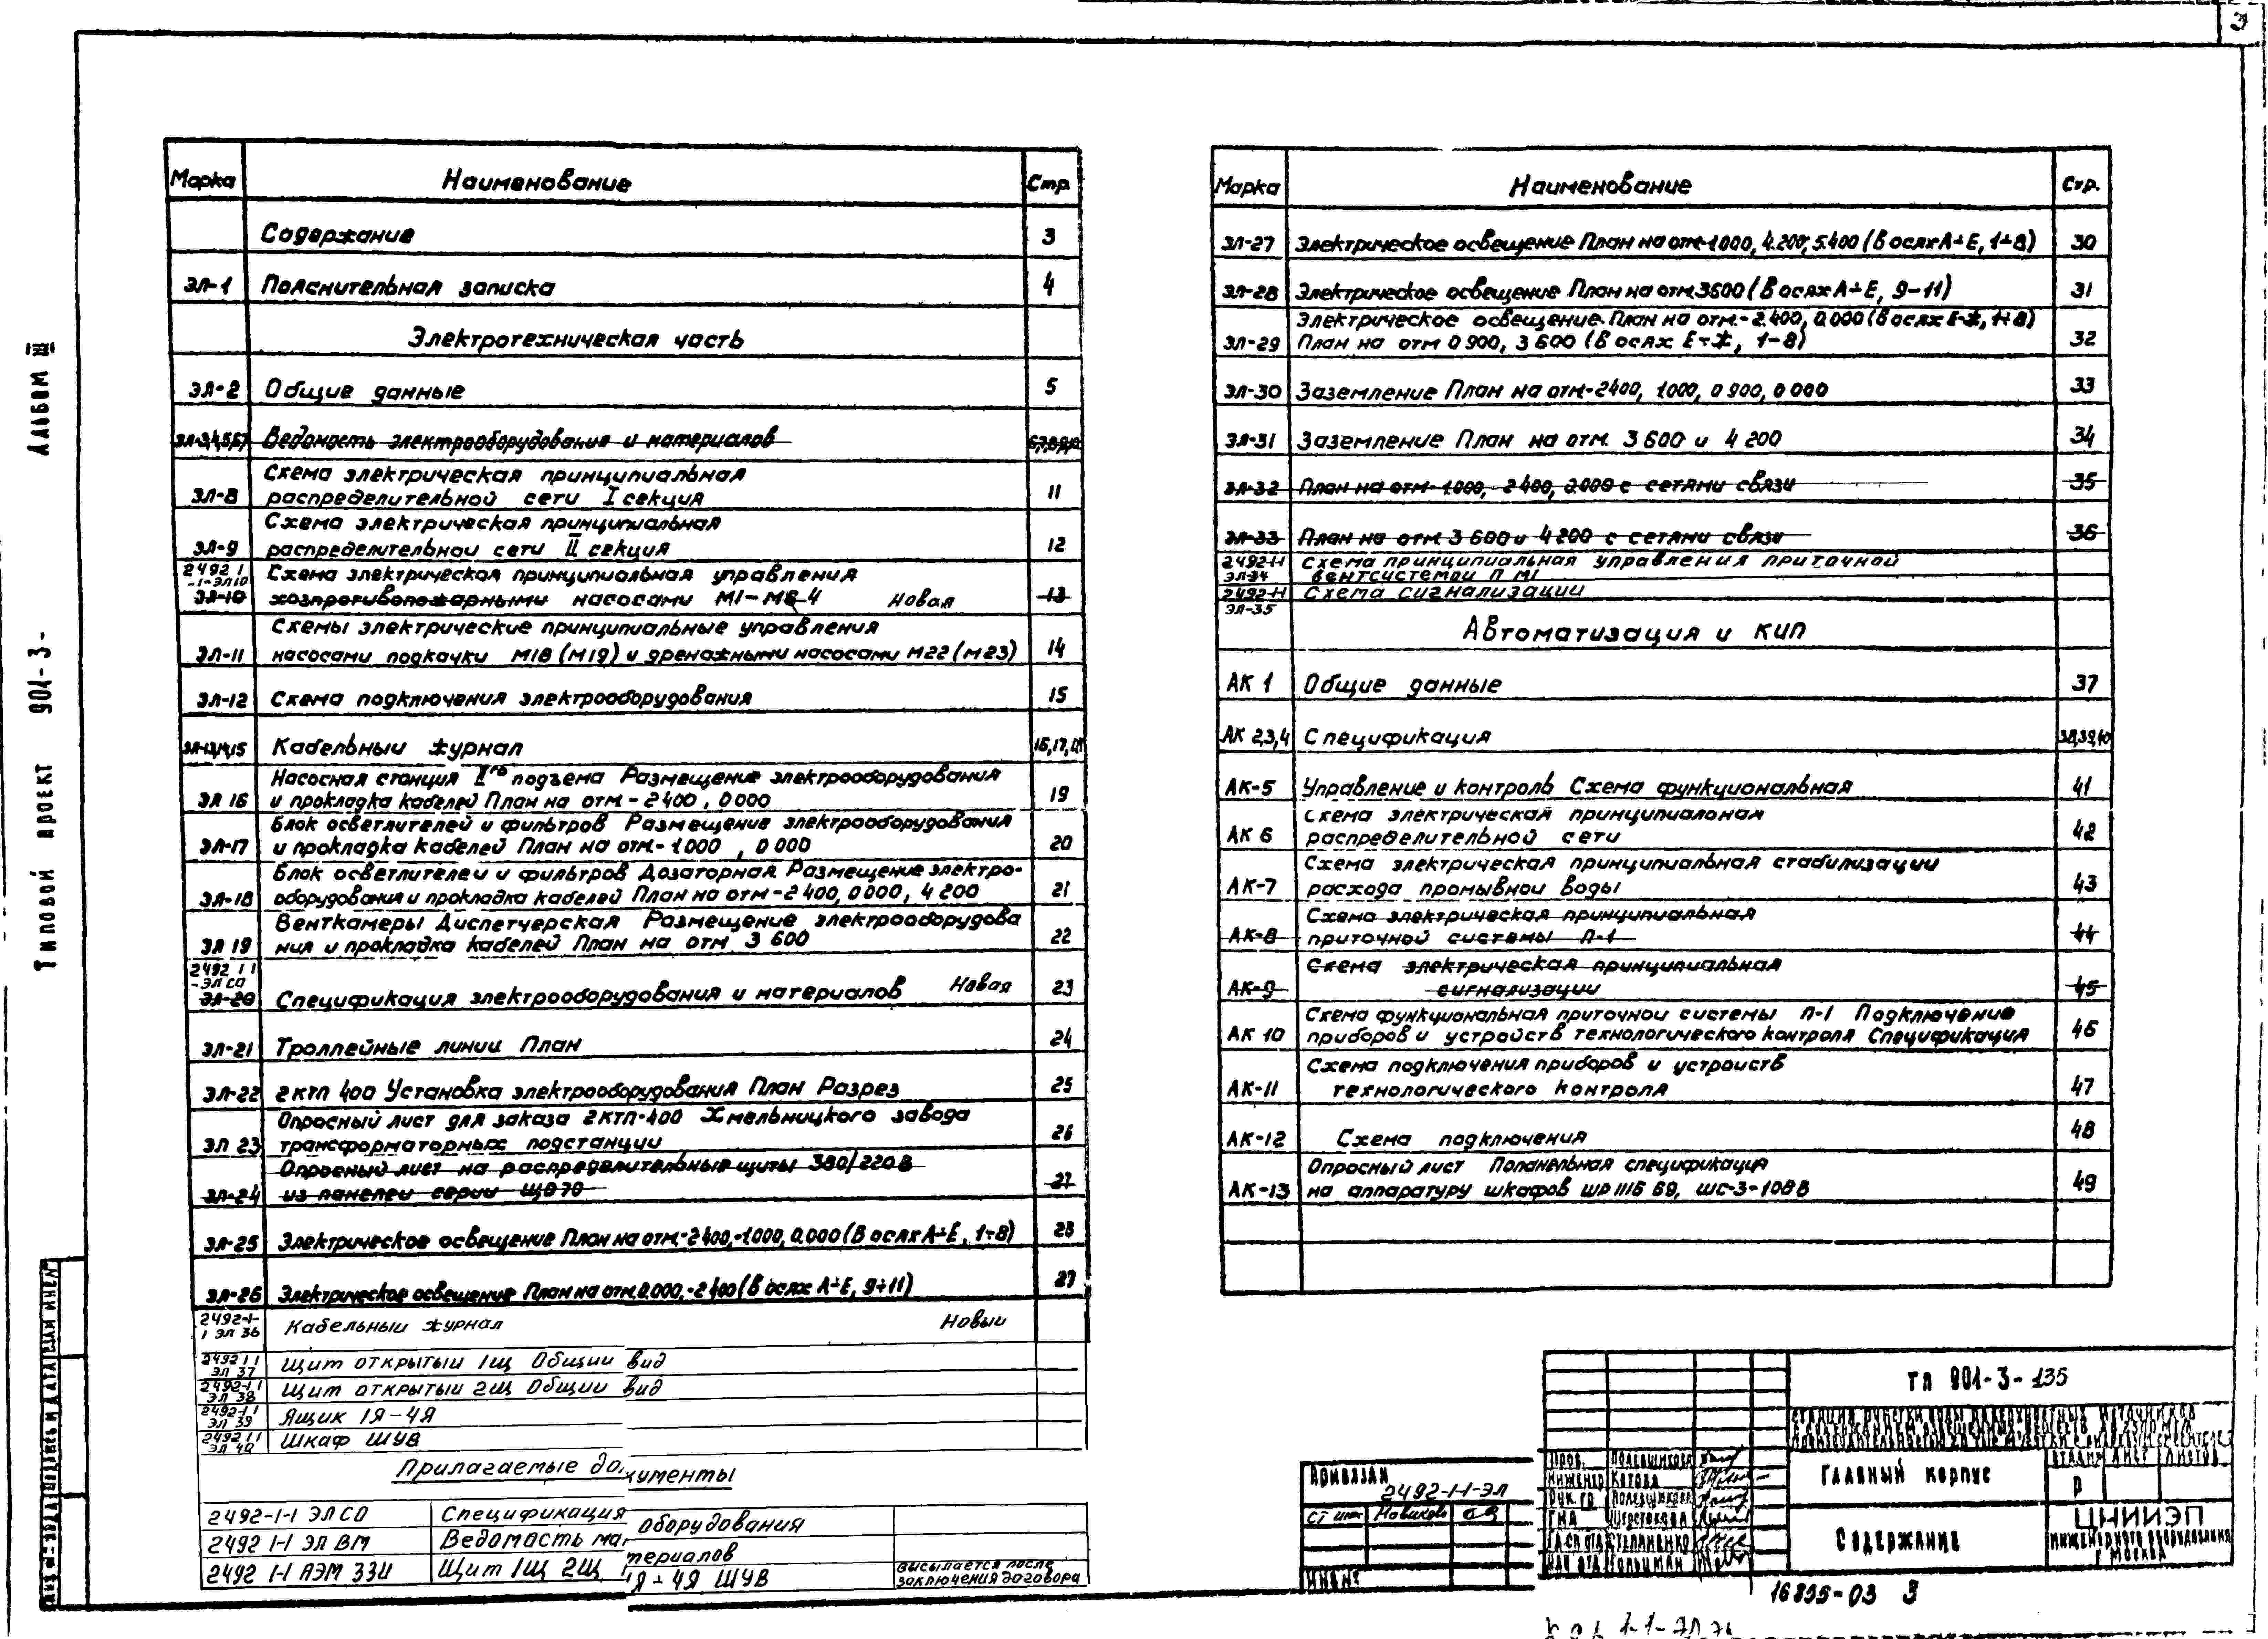 3
Альбом III
Типовой проект 901-3-
Марка Наименование Стр.
Содержание 3
ЭЛ-1 Пояснительная записка 4
Электротехническая часть
ЭЛ-2 Общие данные 5
ЭЛ-3,4,5,6,7 Ведомость электрооборудования и материалов
Схема электрическая принципиальная
ЭЛ-8 распределительной сети I секция 11
Схема электрическая принципиальная
ЭЛ-9 распределительной сети II секция 12
2492 1 Схема электрическая принципиальная управления
-1-ЭЛ10
ЭЛ-10 хозпротивопожарными насосами М1-М6 4 Новая 13
Схемы электрические принципиальные управления
ЭЛ-11 насосами подкачки М18 (М19) и дренажными насосами М22 (М23) 14
ЭЛ-12 Схема подключения электрооборудования 15
ЭЛ-13,14,15 Кабельный журнал 16,17,18
Насосная станция IIго подъема Размещение электрооборудования
ЭЛ 16 и прокладка кабелей План на отм - 2400, 0000 19
Блок осветлителей и фильтров Размещение электрооборудования
ЭЛ-17 и прокладка кабелей План на отм - 1000, 0000 20
Блок осветлителей и фильтров Дозаторная Размещение электро-
ЭЛ-18 оборудования и прокладка кабелей План на отм - 2400, 0000, 4200 21
Венткамеры Диспетчерская Размещение электрооборудова
ЭЛ 19 ния и прокладка кабелей План на отм 3 600 22
2492 1 1
-ЭЛ СО
ЭЛ-20 Спецификация электрооборудования и материалов Новая 23
ЭЛ-21 Троллейные линии План 24
ЭЛ-22 2КТП 400 Установка электрооборудования План Разрез 25
Опросный лист для заказа 2КТП-400 Хмельницкого завода
ЭЛ 23 трансформаторных подстанции 26
Опросный лист на распределительные щиты 380/220В
ЭЛ-24 из панелей серии ЩО70 27
ЭЛ-25 Электрическое освещение План на отм.-2400,-1.000, 0.000 (В осях А÷Е, 1÷8) 28
ЭЛ-26 Электрическое освещение План на отм. 0.000,-2 400 (В осях А÷Е, 9÷11) 27
2492-1-
1 ЭЛ 36 Кабельный журнал Новый
2492 1 1
ЭЛ 37 Щит открытый 1Щ Общий вид
2492-1 1
ЭЛ 38 Щит открытый 2Щ Общий вид
2492-1 1
ЭЛ 39 Ящик 1Я-4Я
2492 1 1
ЭЛ 40 Шкаф ШУВ
Прилагаемые документы
2492-1-1 ЭЛ СО Спецификация оборудования
2492 1-1 ЭЛ ВМ Ведомость материалов
2492 1-1 АЭМ ЗЗИ Щит 1Щ 2Щ, 1Я-4Я ШУВ высылается после
заключения договора
Марка Наименование Стр.
ЭЛ-27 Электрическое освещение План на отм-1.000, 4.200, 5.400 (В осях А÷Е, 1÷8) 30
ЭЛ-28 Электрическое освещение План на отм.3600 (В осях А÷Е, 9-11) 31
Электрическое освещение. План на отм.- 2.400, 0.000 (В осях Е-Ж, 1÷8)
ЭЛ-29 План на отм 0 900, 3 600 (В осях Е÷Ж, 1-8) 32
ЭЛ-30 Заземление План на отм-2400, 1000, 0 900, 0 000 33
ЭЛ-31 Заземление План на отм. 3 600 и 4 200 34
ЭЛ-32 План на отм-1.000, -2 400, 0.000 с сетями связи 35
ЭЛ-33 План на отм 3 600 и 4 200 с сетями связи 36
2492-1-1 Схема принципиальная управления приточной
ЭЛ-34 вентсистемой П М1
2492-1-1 Схема сигнализации
ЭЛ-35
Автоматизация и КИП
АК 1 Общие данные 37
АК 2,3,4 Спецификация 38,39,40
АК-5 Управление и контроль Схема функциональная 41
Схема электрическая принципиальная
АК 6 распределительной сети 42
Схема электрическая принципиальная стабилизации
АК-7 расхода промывной воды 43
Схема электрическая принципиальная
АК-8 приточной системы П-1 44
Схема электрическая принципиальная
АК-9 сигнализации 45
Схема функциональная приточной системы П-1 Подключение
АК 10 приборов и устройств технологического контроля Спецификация 46
Схема подключения приборов и устройств
АК-11 технологического контроля 47
АК-12 Схема подключения 48
Опросный лист Попанельная спецификация
АК-13 на аппаратуру шкафов 49
Привязан
2492-1-1-ЭЛ
ст инж Новиков
ИНВ №
ТП 901-3-135
Пров. Полевщикова
Инженер Котова
Рук. гр Полевщикова
Главный корпус
Стадия Лист Листов
Р
Содержание
ЦНИИЭП
инженерного оборудования
г Москва
16835-03 3